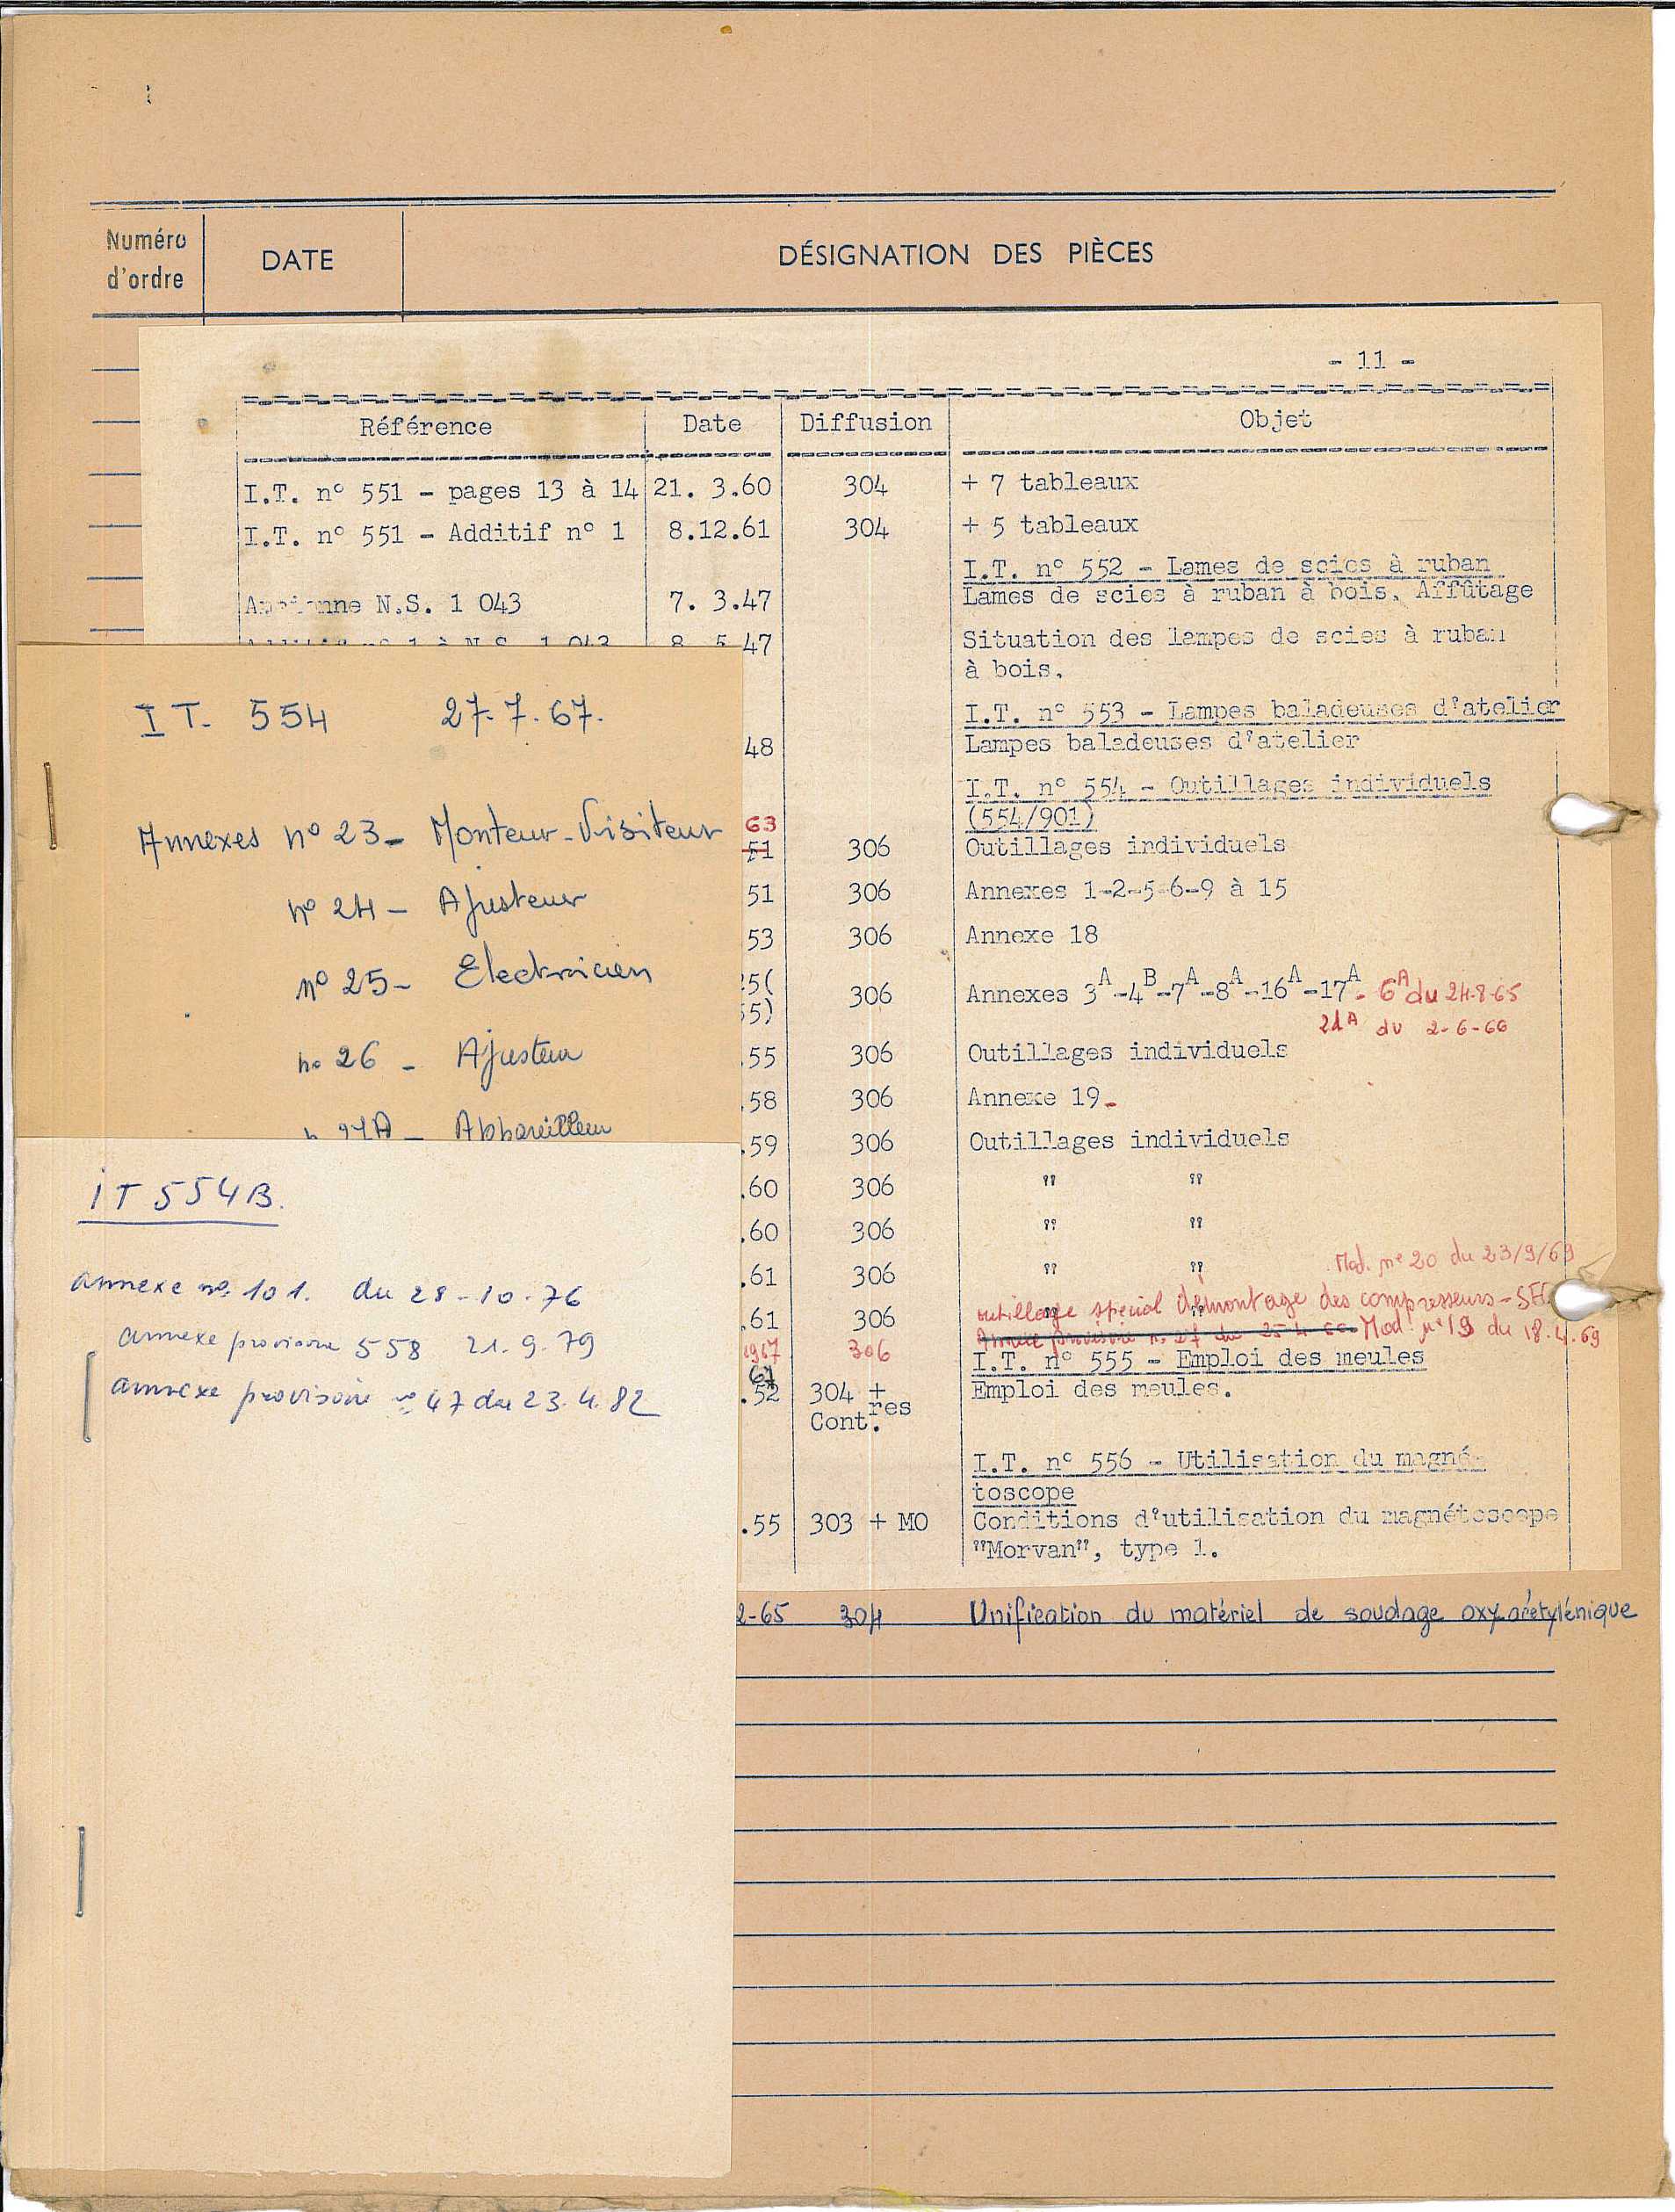 Numéro
d'ordre
DATE
DÉSIGNATION DES PIÈCES
- 11 -
Référence Date Diffusion Objet
I.T. n° 551 - pages 13 à 14 21. 3.60 304 + 7 tableaux
I.T. n° 551 - Additif n° 1 8.12.61 304 + 5 tableaux
I.T. n° 552 - Lames de scies à ruban
Ancienne N.S. 1 043 7. 3.47 Lames de scies à ruban à bois. Affûtage
47 Situation des lampes de scies à ruban
à bois.
I.T. n° 553 - Lampes baladeuses d'atelier
48 Lampes baladeuses d'atelier
I.T. n° 554 - Outillages individuels
(554/901)
63
51 306 Outillages individuels
51 306 Annexes 1-2-5-6-9 à 15
53 306 Annexe 18
55) 306 Annexes 3A-4B-7A-8A-16A-17A - 6A du 24-8-65
21A du 2-6-66
.55 306 Outillages individuels
.58 306 Annexe 19-
.59 306 Outillages individuels
.60 306 " "
.60 306 " "
.61 306 " " Mod. n° 20 du 23/9/69
.61 306 " "
outillage spécial démontage des compresseurs -
1967 306 Mod. n° 19 du 18.4.69
I.T. n° 555 - Emploi des meules
.52 304 + Emploi des meules.
Cont.res
I.T. n° 556 - Utilisation du magné-
toscope
.55 303 + MO Conditions d'utilisation du magnétoscope
"Morvan", type 1.
2-65 304 Unification du matériel de soudage oxyacétylénique
I T. 554 27.7.67.
Annexes n° 23 - Monteur-Visiteur
n° 24 - Ajusteur
n° 25 - Electricien
n° 26 - Ajusteur
Appareilleur
IT 554B.
annexe n° 101. du 28-10-76
annexe provisoire 558 21.9.79
annexe provisoire n° 47 du 23.4.82